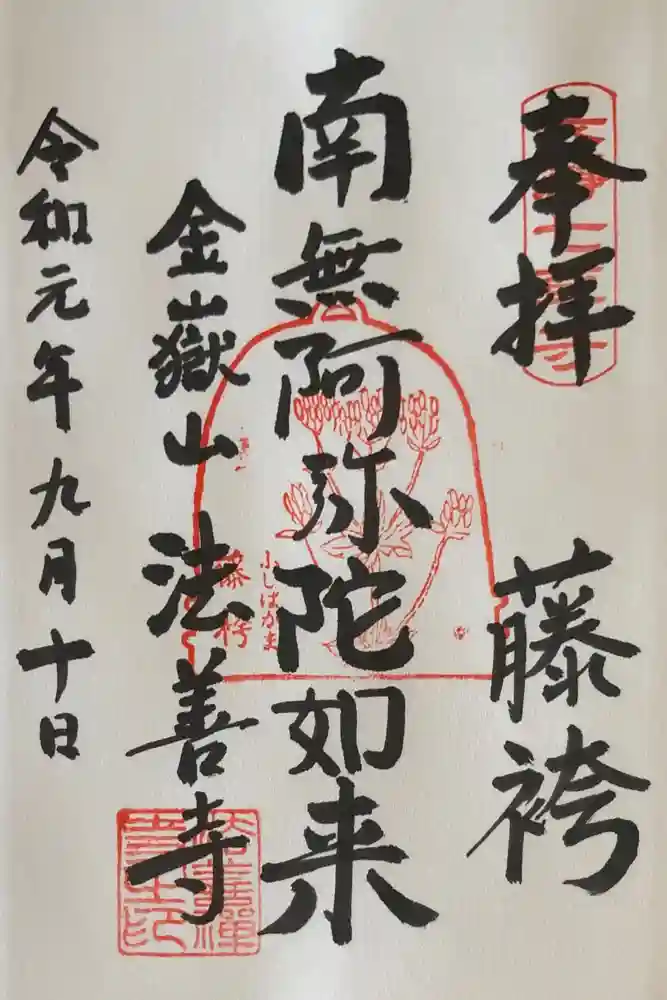 奉拝
藤袴
南無阿弥陀如来
金嶽山 法善寺
令和元年九月十日
藤袴
ふじばかま